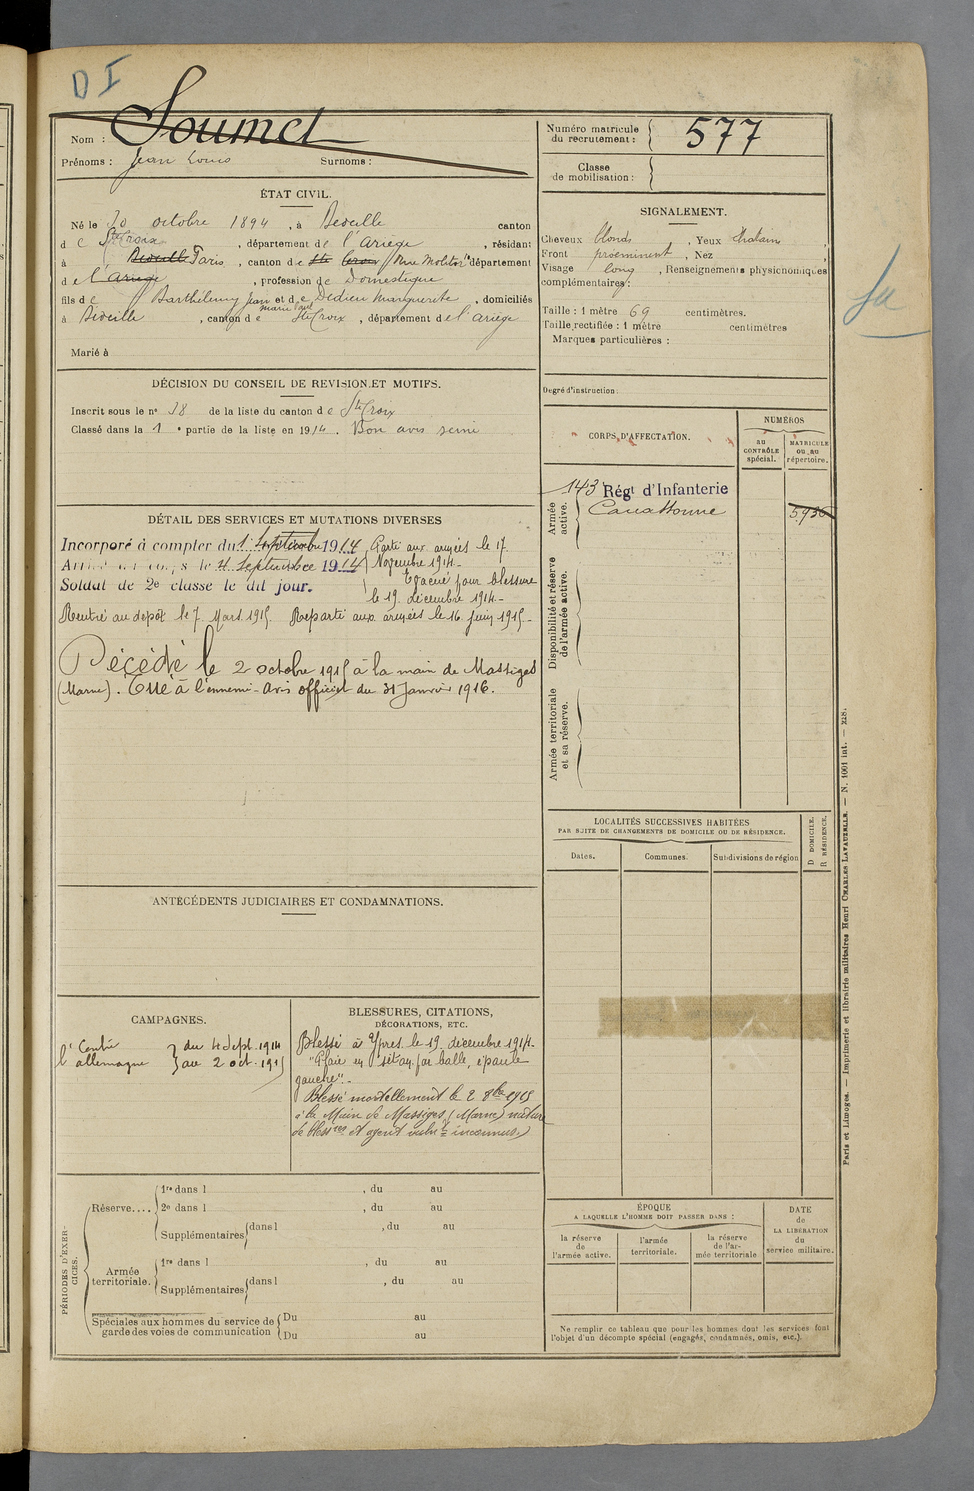 D I
Nom : Soumet
Prénoms : Jean Louis Surnoms :
Numéro matricule du recrutement : 577
Classe de mobilisation :
ÉTAT CIVIL.
Né le 30 octobre 1894, à canton
de Ste Croix, département de l'Ariège, résidant
à Paris, canton de Ste Croix / Rue Molitor département
de l'Ariège, profession de Domestique
fils de Barthélemy Jean et de Dedieu Marguerite, domiciliés
marie
à, canton de Ste Croix, département de l'Ariège
Marié à
SIGNALEMENT.
Cheveux blonds, Yeux chatain,
Front proéminent, Nez,
Visage long, Renseignements physionomiques
complémentaires :
Taille : 1 mètre 69 centimètres.
Taille rectifiée : 1 mètre centimètres
Marques particulières :
Degré d'instruction.
DÉCISION DU CONSEIL DE REVISION ET MOTIFS.
Inscrit sous le n° 18 de la liste du canton de Ste Croix
Classé dans la 1 e partie de la liste en 1914. Bon
CORPS D'AFFECTATION.
NUMÉROS
au CONTRÔLE spécial.
MATRICULE ou au répertoire.
Armée active.
143 Régt d'Infanterie
Carcassonne
5936
Disponibilité et réserve de l'armée active.
Armée territoriale et sa réserve.
DÉTAIL DES SERVICES ET MUTATIONS DIVERSES
Incorporé à compter du 1 Septembre 1914
Arrivé au corps le 4 Septembre 1914
Soldat de 2e classe le dit jour.
Parti aux armées le 17
Novembre 1914-
Évacué pour blessure
le 19 décembre 1914-
Rentré au dépôt le 7 Mars 1915. Reparti aux armées le 16 juin 1915-
Décédé le 2 octobre 1915 à la main de Massiges
(Marne). Tué à l'ennemi - avis officiel du 31 Janvier 1916.
LOCALITÉS SUCCESSIVES HABITÉES
PAR SUITE DE CHANGEMENTS DE DOMICILE OU DE RÉSIDENCE.
Dates.
Communes.
Subdivisions de région
D DOMICILE.
R RÉSIDENCE.
ANTÉCÉDENTS JUDICIAIRES ET CONDAMNATIONS.
CAMPAGNES.
Contre
l'allemagne
du 4 Sept. 1914
au 2 oct. 1915
BLESSURES, CITATIONS,
DÉCORATIONS, ETC.
Blessé à Ypres le 19 décembre 1914-
"Plaie en séton par balle, épaule
gauche".-
Blessé mortellement le 2 8bre 1915
à la Main de Massiges (Marne) nature
de blessres et agent vulnt inconnus.)
PÉRIODES D'EXERCICES.
Réserve....
1re dans l, du au
2e dans l, du au
Supplémentaires dans l, du au
Armée territoriale.
1re dans l, du au
Supplémentaires dans l, du au
Spéciales aux hommes du service de
garde des voies de communication
Du au
Du au
ÉPOQUE
A LAQUELLE L'HOMME DOIT PASSER DANS :
la réserve de l'armée active.
l'armée territoriale.
la réserve de l'armée territoriale
DATE
de
LA LIBÉRATION
du
service militaire.
Ne remplir ce tableau que pour les hommes dont les services font
l'objet d'un décompte spécial (engagés, condamnés, omis, etc.).
Paris et Limoges. — Imprimerie et librairie militaires Henri CHARLES LAVAUZELLE. — N. 1001 int. — 228.